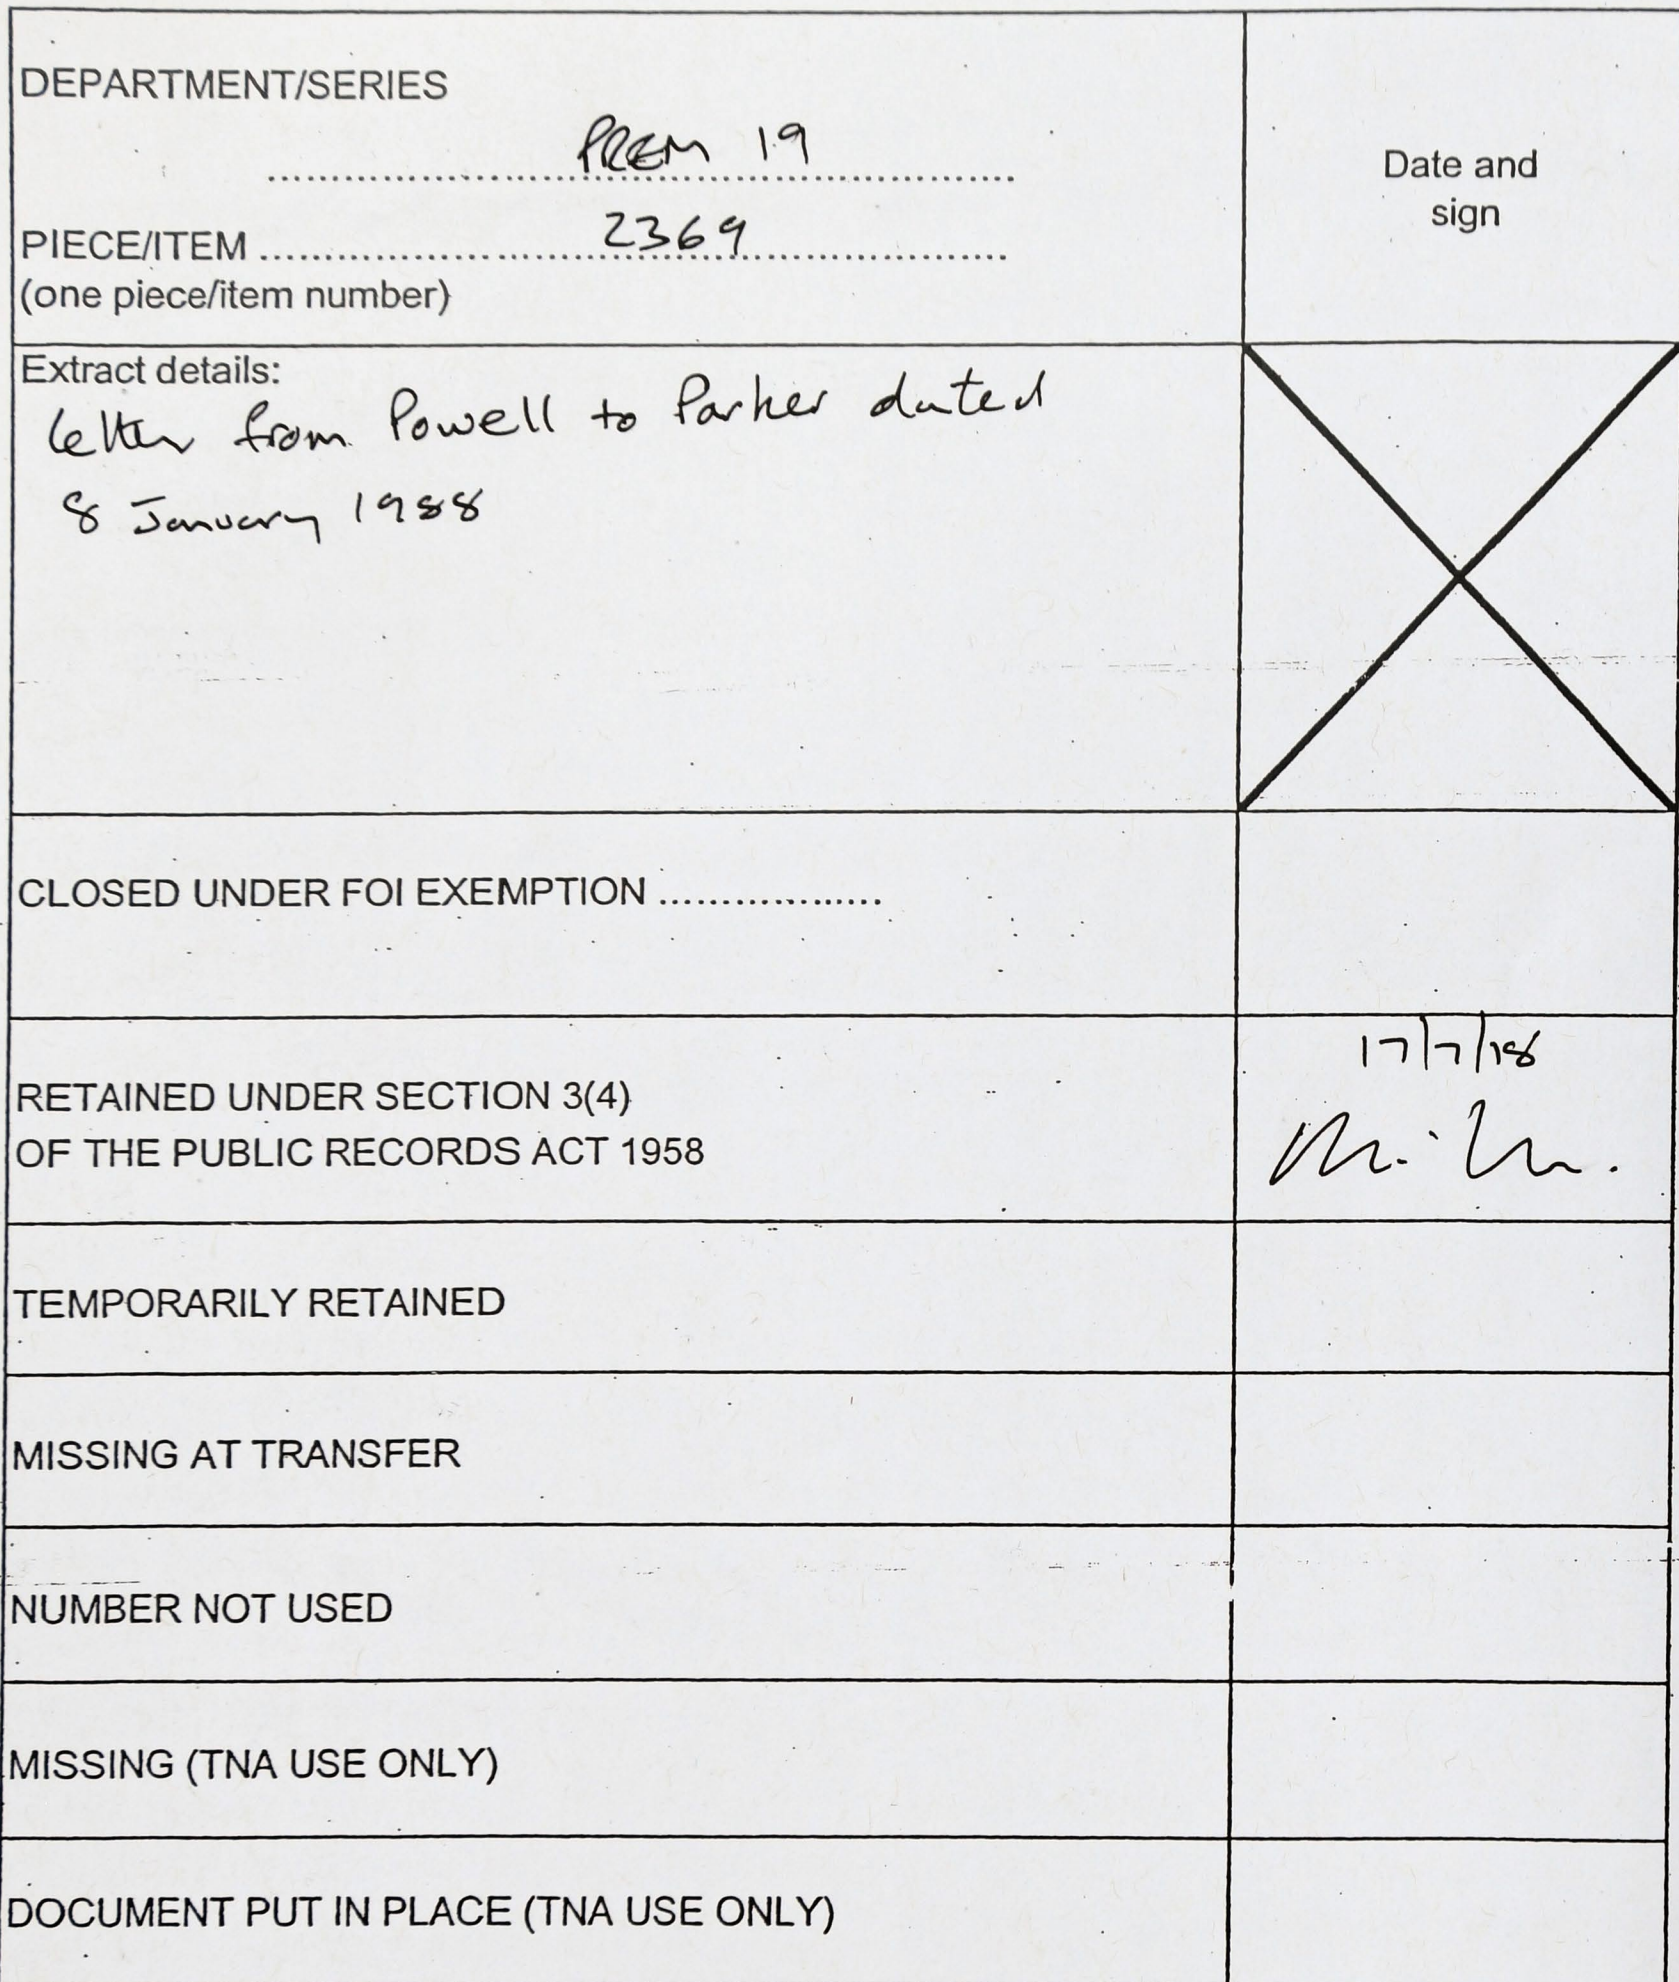 DEPARTMENT/SERIES
PREM 19
Date and
sign
PIECE/ITEM 2369
(one piece/item number)
Extract details:
Letter from Powell to Parker dated
8 January 1988
CLOSED UNDER FOI EXEMPTION ..................
17/7/18
RETAINED UNDER SECTION 3(4)
OF THE PUBLIC RECORDS ACT 1958
TEMPORARILY RETAINED
MISSING AT TRANSFER
NUMBER NOT USED
MISSING (TNA USE ONLY)
DOCUMENT PUT IN PLACE (TNA USE ONLY)